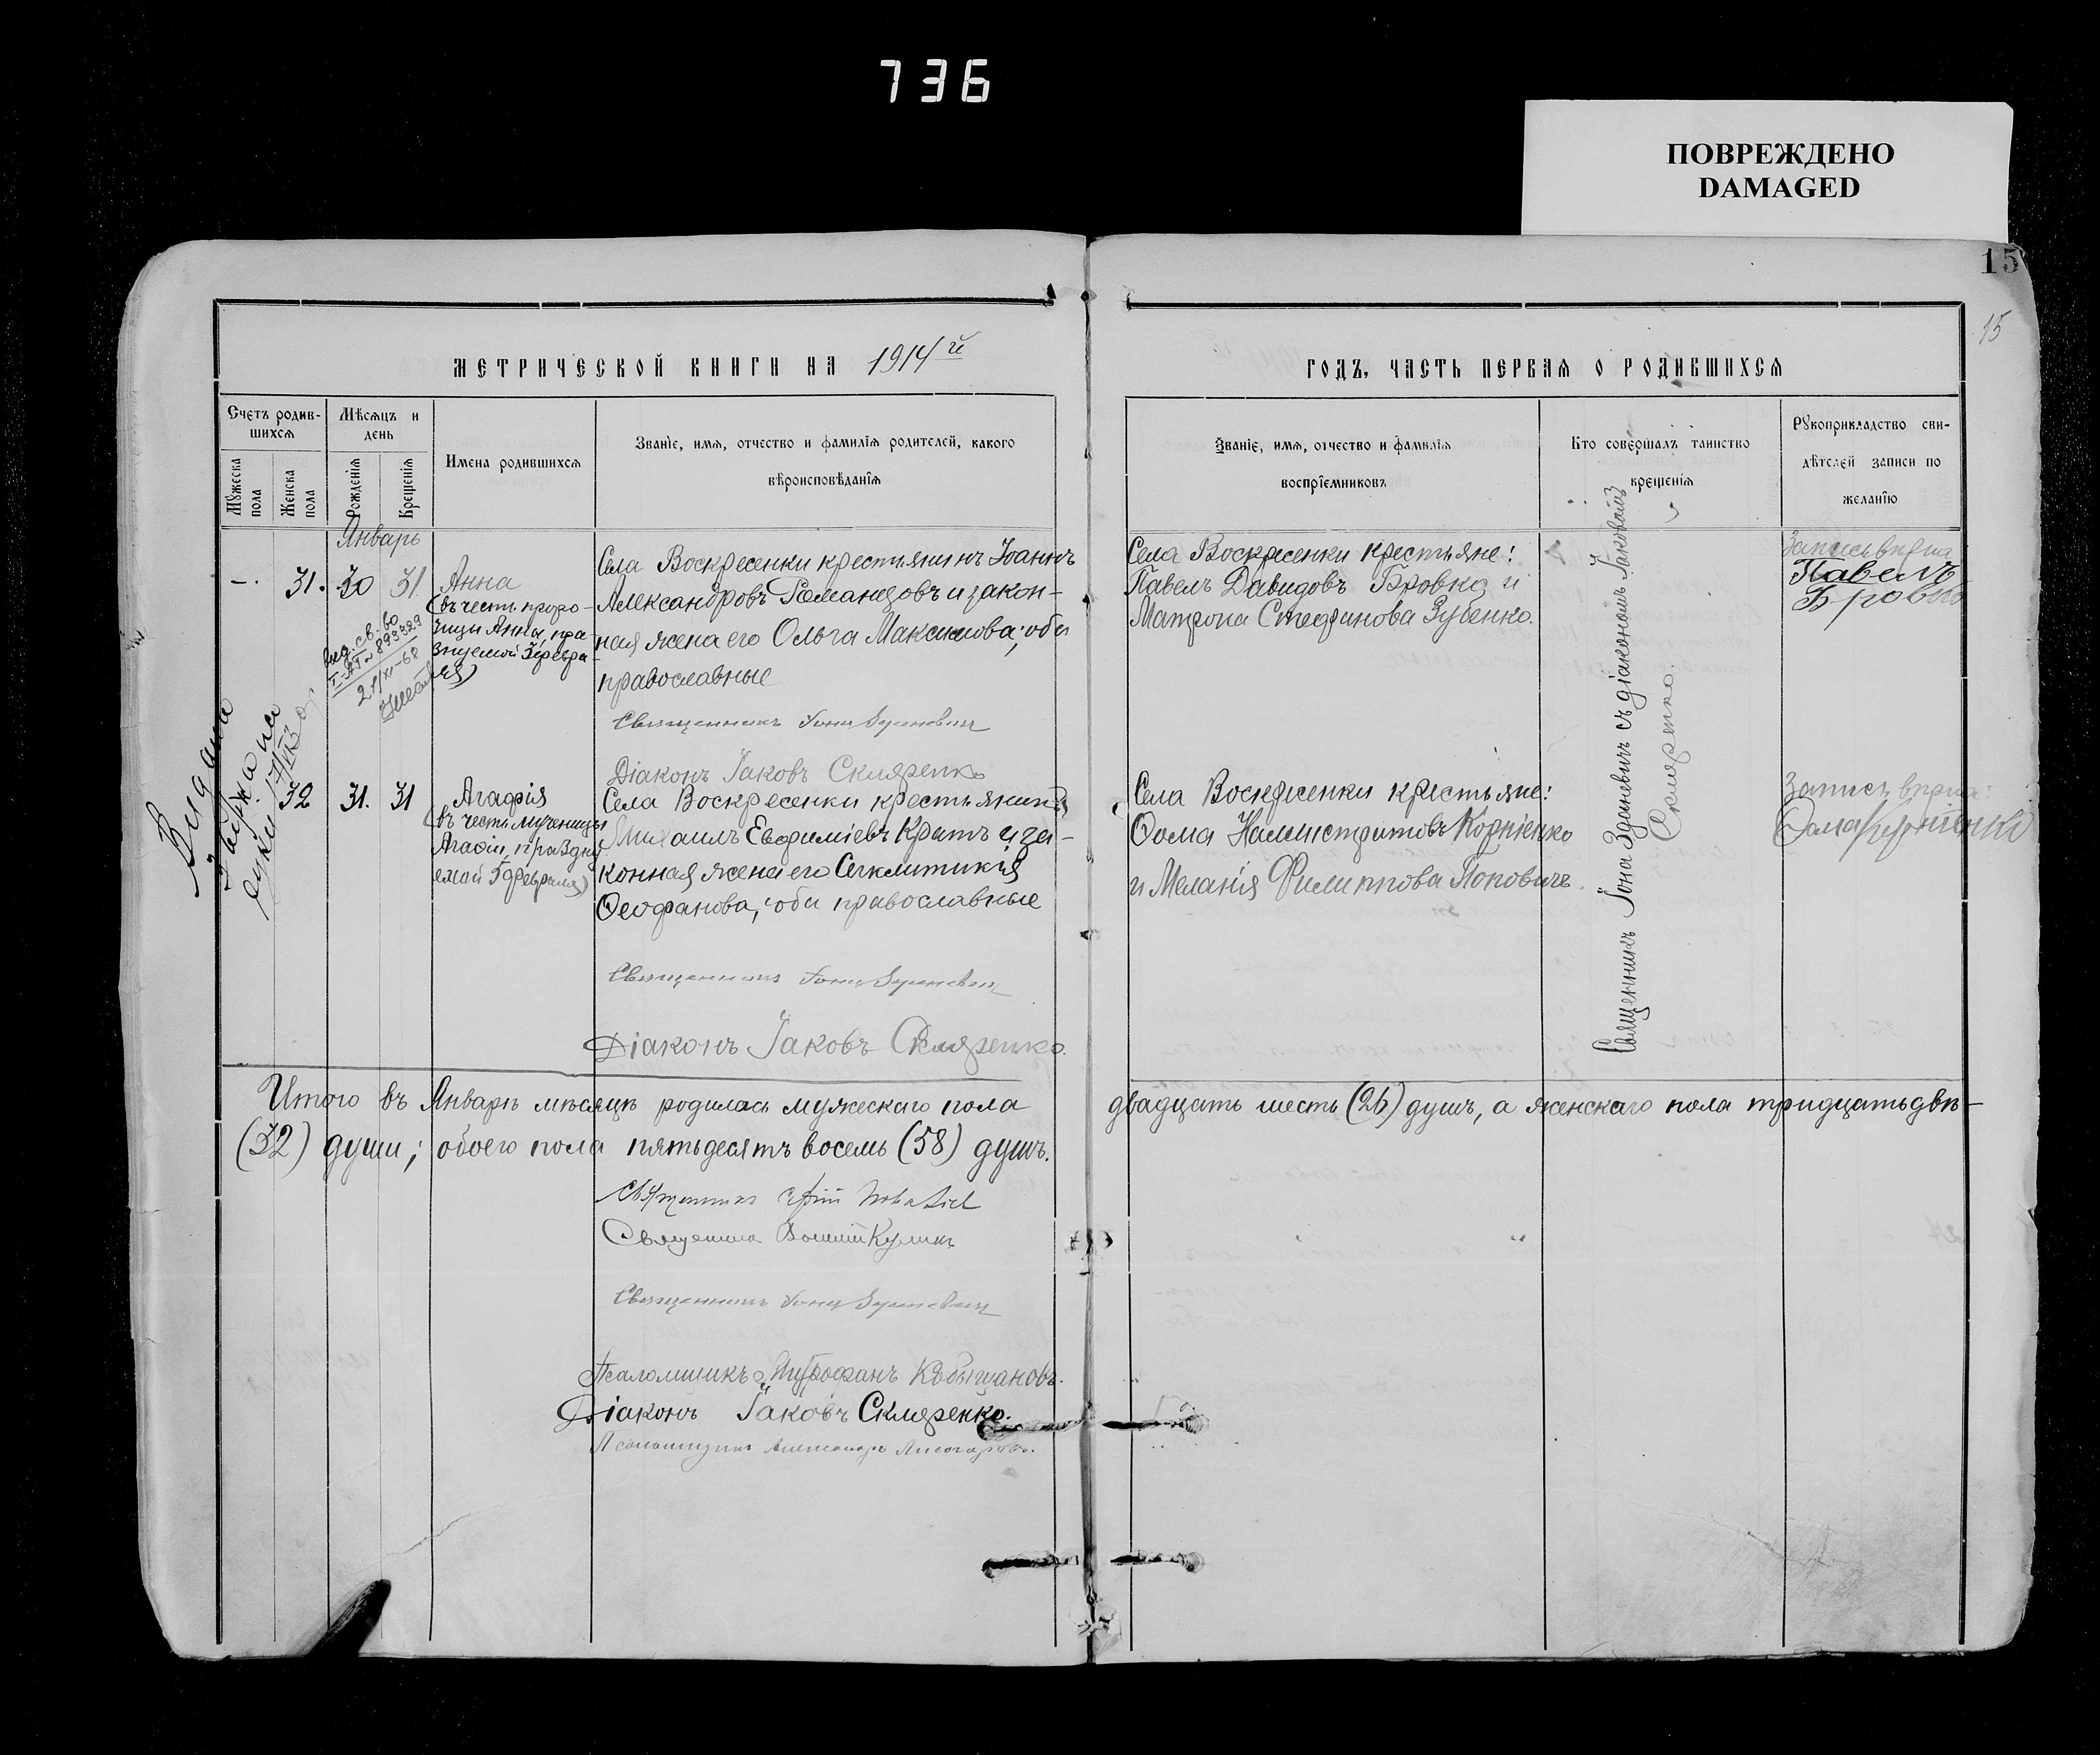 736
ПОВРЕЖДЕНО
DAMAGED
15
15
МЕТРИЧЕСКОЙ КНИГИ НА 1914й
ГОДЪ, ЧАСТЬ ПЕРВАЯ О РОДИВШИХСЯ
Счетъ родив-
шихся
Мѣсяцъ и
день
Мужеска
пола
Женска
пола
Рожденія
Крещенія
Имена родившихся
Званіе, имя, отчество и фамилія родителей, какого
вѣроисповѣданія
Званіе, имя, отчество и фамилія
воспріемниковъ
Кто совершалъ таинство
крещенія
Рукоприкладство сви-
дѣтелей записи по
желанію
Январь
-. 31. 30 31
Анна
(въ честь проро-
чицы Анны, пра-
знуемой 3 февра-
ля)
Села Воскресенки крестьянинъ Іоаннъ
Александровъ Романцовъ и закон-
ная жена его Ольга Максимова; оба
православные
Священникъ Іона Зданевич
Діаконъ Іаковъ Скляренко
Села Воскресенки крестьяне:
Павелъ Давидовъ Бровко и
Матрона Стефанова Зубенко.
Запись вѣрна
Павелъ
Бровко
Священникъ Іона Здaневичъ съ діакономъ Іаковомъ
Скляренко.
выд. св-во
I-АП № 893329
21/XI-68
Видана
32 31. 31
Агафія
(въ честь мученицы
Агафіи, праздну-
емой 5 февраля)
Села Воскресенки крестьянинъ
Михаилъ Евфиміевъ Кратъ и за-
конная жена его Сигклитикія
Ѳеофанова; оба православные
Священникъ Іона Зданевич
Діаконъ Іаковъ Скляренко.
Села Воскресенки крестьяне:
Ѳома Каллистратовъ Корніенко
и Меланія Филиппова Поповичъ.
Запись вѣрна:
Ѳома Корніенко
Итого въ Январѣ мѣсяцѣ родилось мужескаго пола двадцать шесть (26) душъ, а женскаго пола тридцать двѣ-
(32) души; обоего пола пятьдесятъ восемь (58) душъ.
Священникъ
Священникъ Куликъ
Священникъ Іона Зданевич
Псаломщикъ Митрофанъ Кобыщановъ.
Діаконъ Іаковъ Скляренко.
Псаломщикъ Александръ